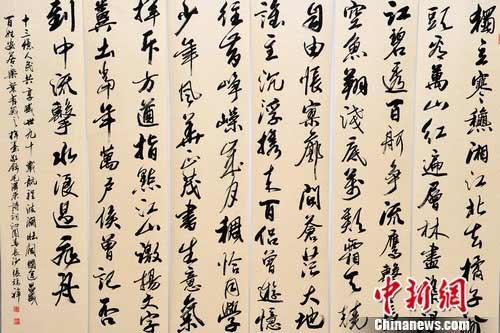 獨立寒穐湘江北去橘子
頭看萬山紅遍層林盡
江碧透百舸爭流鷹擊
空魚翔淺底萬類霜天競
自由悵寥廓問蒼茫大地
誰主沉浮攜來百侣曾遊憶
往昔崢嶸歲月稠恰同學
少年風華正茂書生意氣
揮斥方遒指點江山激揚文字
糞土當年萬戶侯曾記否
到中流擊水浪遏飛舟
十三億人民共享盛世九十 航程波瀾壯闊國逢昌盛
百姓安居樂業
中新网
Chinanews.com